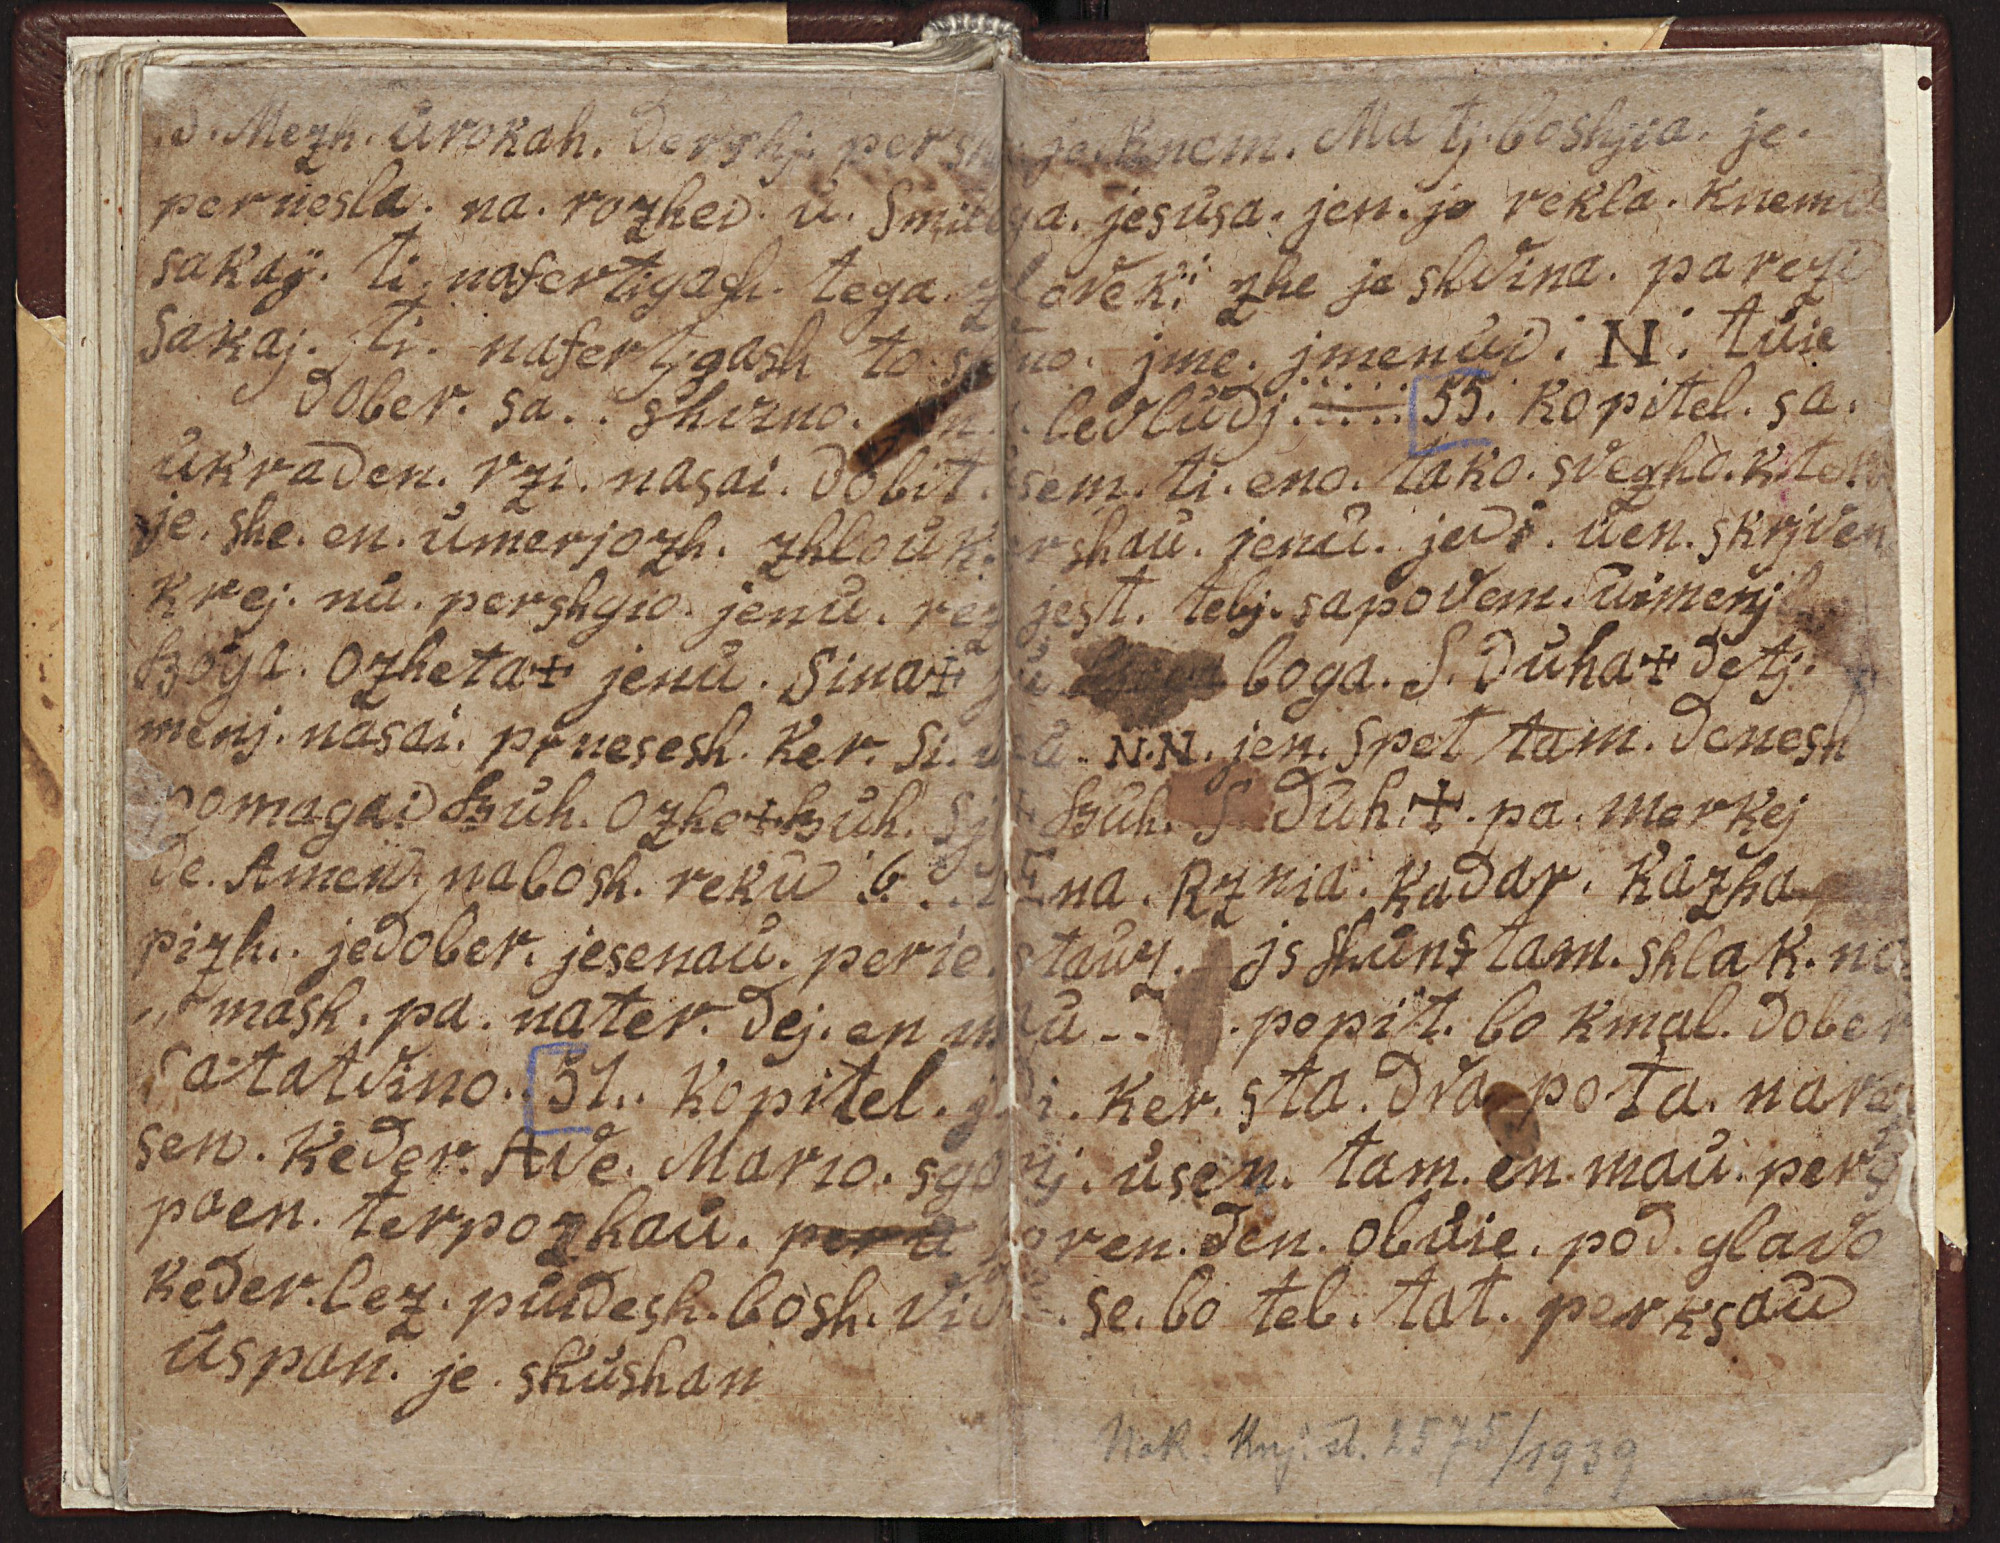 d. Mezh. ůrokah. dershj. persh je. Knem. Ma tj. boshgia. je.
pernesla. na. rozheid. u. Smilega. jesůsa. jen. je rekla. Knem
sakaÿ. ti. nafertigash. tega. zloveki zhe je shvina. parezi
Sakaj. ti. nafertjgash to. samo. jme. jmenůid. N. tůie
dober. sa.. shivzno. levlůdj..... 55. kopitel. sa.
ůkraden. rzi. nasai. dobit. ůsem. ti. eno. tako. svezho. k
je. she. en. ůmerjozh. zhloůk. ershaů. jenů. jedi. ůen. skrjven
krej. nů. pershgio. jenů. rez jest. tebj. sapovem. ůimenj
Boga. Ozheta+ jenů. Sina+ boga. S. Důha+ detj.
menj. nasai. prnesesh. ker. Si. N.N. jen. spet tam. denesh
pomagaid Bůh. Ozhe+. Bůh. Bůh. S důh.+. pa. merkej
de. Amen. nabosh. reků 6 na. Rznia. kadar. kazha
pizh.. jedober. jesenaů. perie. stavz. js shůns tam. shlak. na
mash. pa. nater. dej. en maů -.. popit. bo kmal. dober
Satatvino.. 51.. kopitel. jdi. ker. sta. dva pota. nare
sen. keder. Ave. Mario. sgonj. ůsen. tam. en. maů. per
poen. terpozhaů. goren. den. obůie. pod. glavo
keder. lez. půidesh. bosh. vid se. bo teb. tat. perksaůd
ůspan. je. skůshan
Nak. Knj. št. 2575/1939